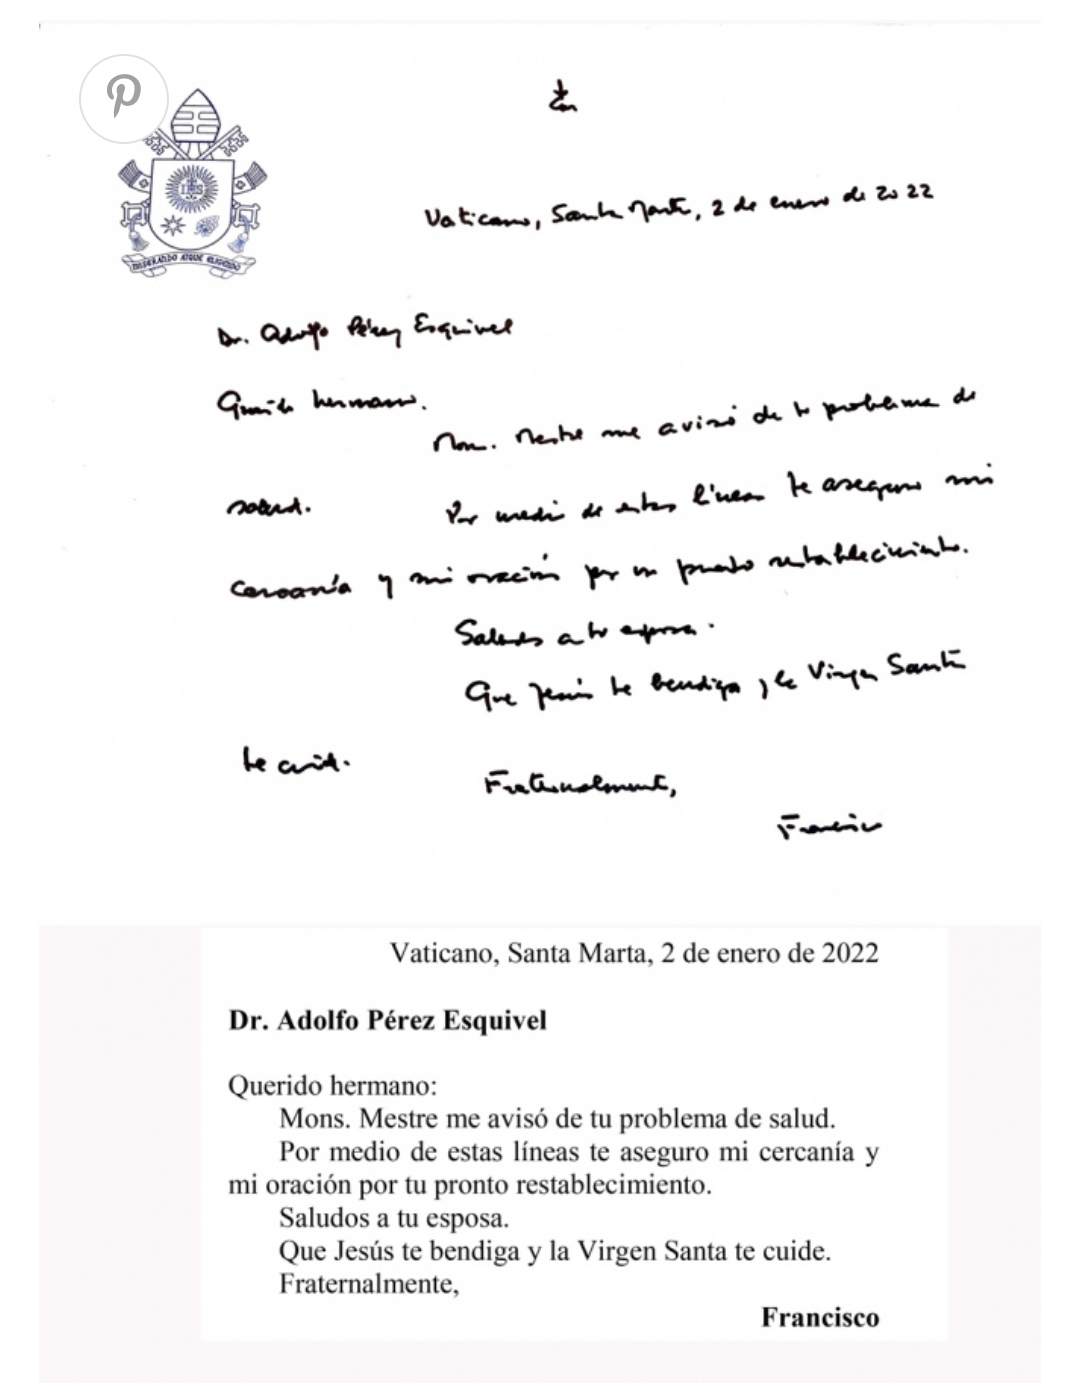 IHS
MISERANDO ATQUE ELIGENDO
Vaticano, Santa Marta, 2 de enero de 2022
Dr. Adolfo Pérez Esquivel
Querido hermano.
Mons. Mestre me avisó de tu problema de
salud.
Por medio de estas líneas te aseguro mi
cercanía y mi oración por tu pronto restablecimiento.
Saludos a tu esposa.
Que Jesús te bendiga y la Virgen Santa
te cuide.
Fraternalmente,
Francisco
Vaticano, Santa Marta, 2 de enero de 2022
Dr. Adolfo Pérez Esquivel
Querido hermano:
Mons. Mestre me avisó de tu problema de salud.
Por medio de estas líneas te aseguro mi cercanía y
mi oración por tu pronto restablecimiento.
Saludos a tu esposa.
Que Jesús te bendiga y la Virgen Santa te cuide.
Fraternalmente,
Francisco